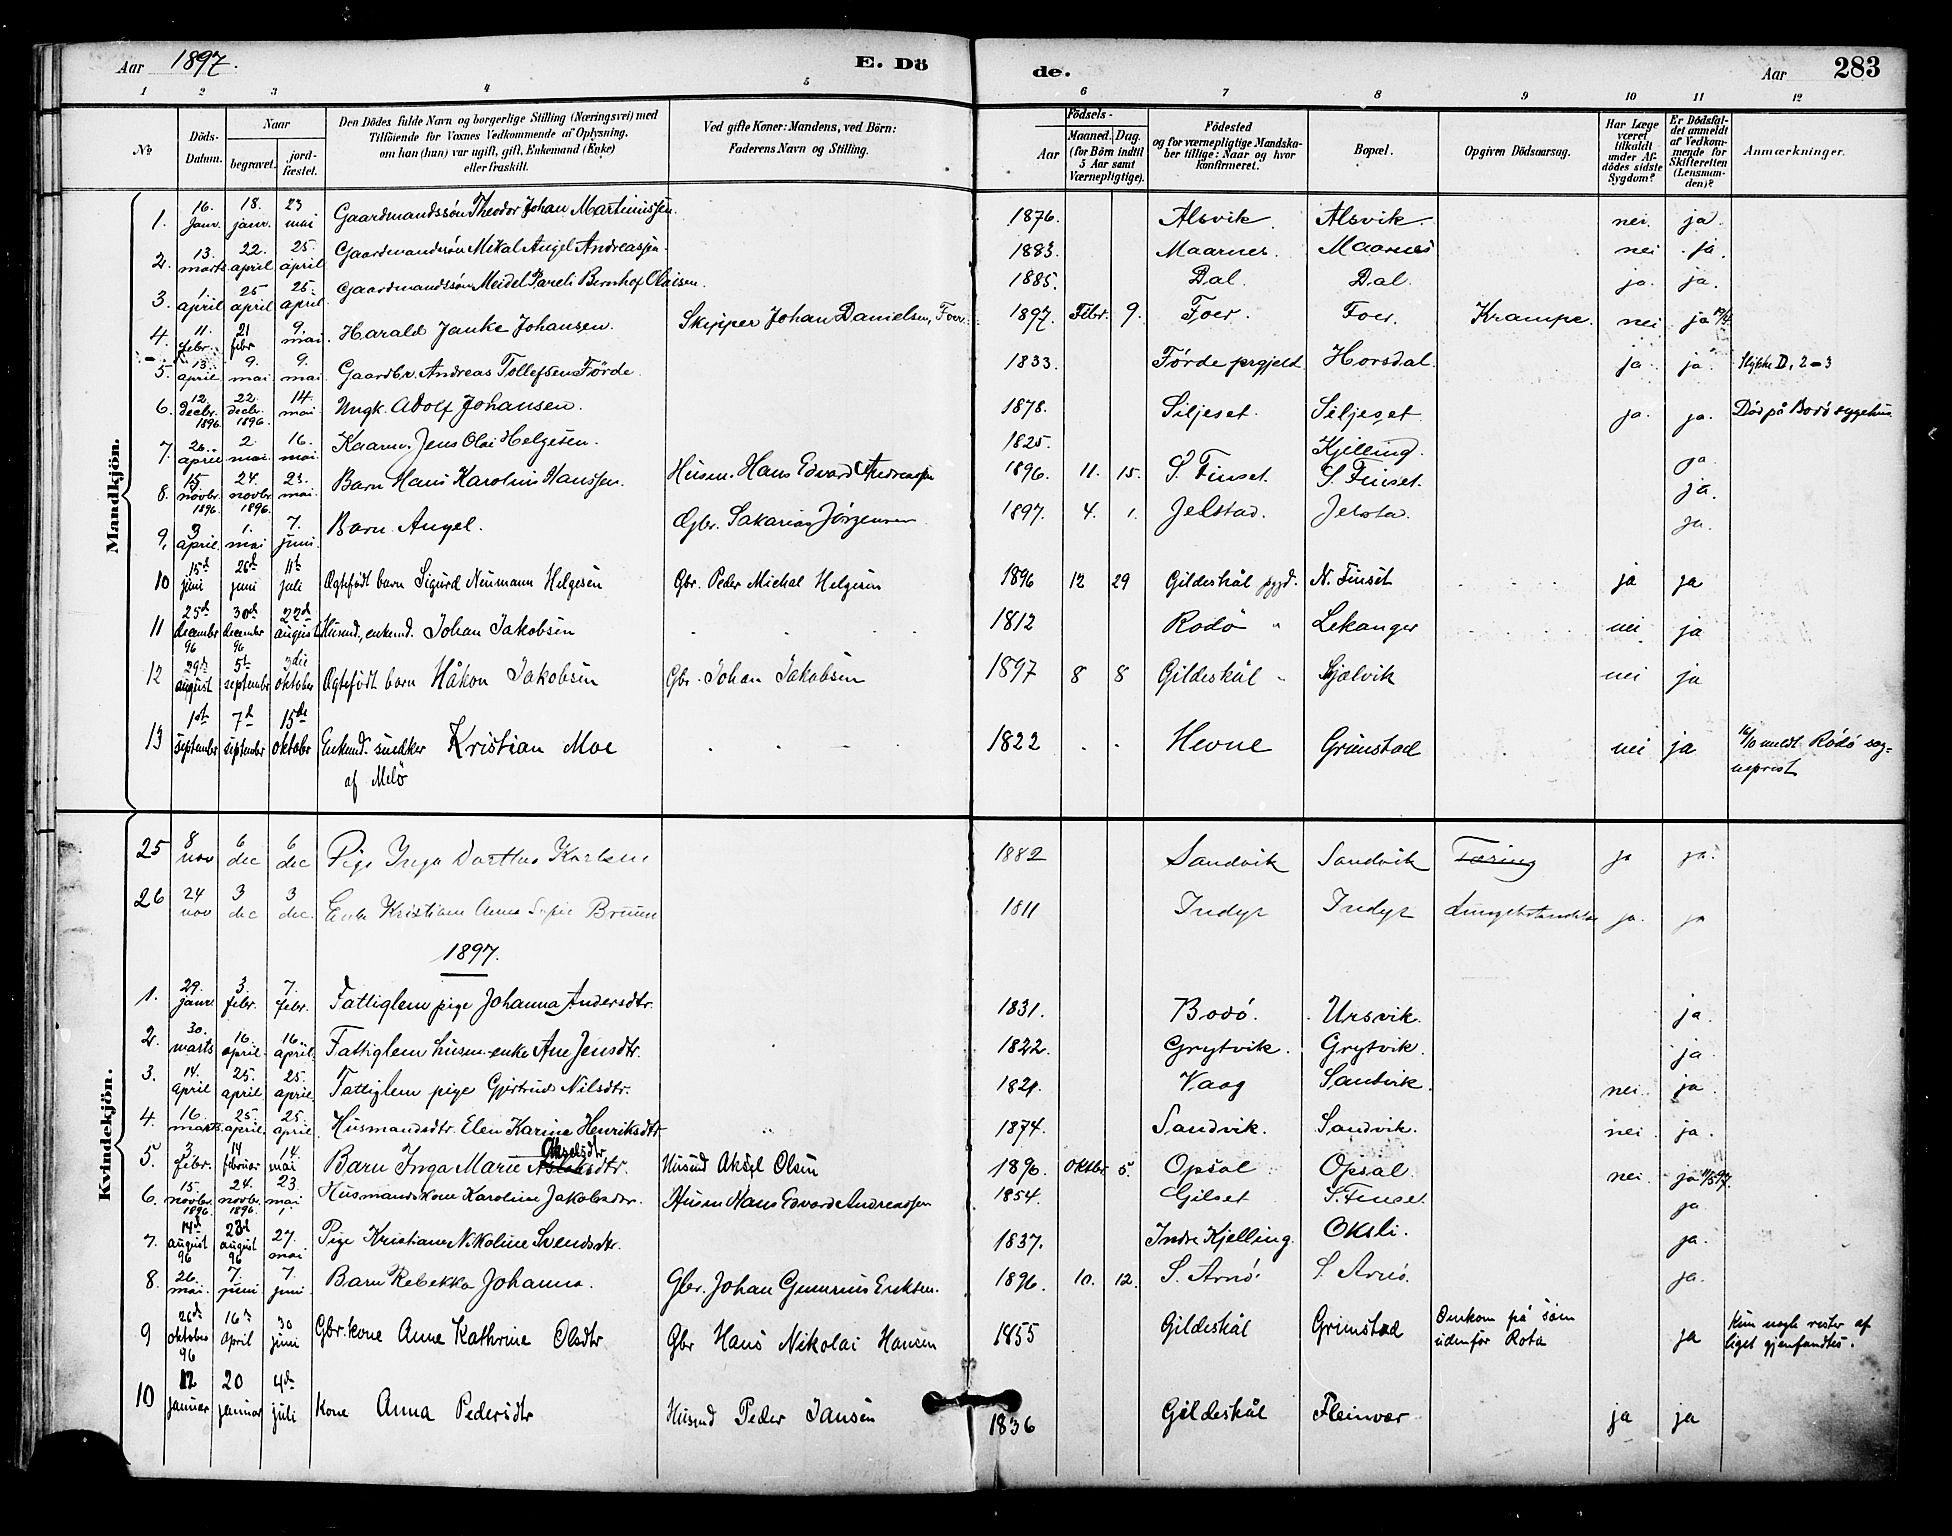 Aar 1897.
E. Dö
de.
Aar
283
1 2 3 4 5 6 7 8 9 10 11 12
No
Döds-Datum.
Naar
begravet.
jord-fæstet.
Den Dödes fulde Navn og borgerlige Stilling (Næringsvei) med
Tilföiende for Voxnes Vedkommende af Oplysning,
om han (hun) var ugift, gift, Enkemand (Enke)
eller fraskilt.
Ved gifte Koner: Mandens, ved Börn:
Faderens Navn og Stilling.
Födsels-
Aar
Maaned. Dag.
(for Börn indtil
5 Aar samt
Værnepligtige).
Födested
og for værnepligtige Mandska-
ber tillige: Naar og hvor
konfirmeret.
Bopæl.
Opgiven Dödsaarsag.
Har Læge
været
tilkaldt
under Af-
dödes sidste
Sygdom?
Er Dödsfal-
det anmeldt
af Vedkom-
mende for
Skifteretten
(Lensman-
den)?
Anmærkninger.
Mandkjön.
1. 16. Janr. 18. janr. 23 mai Gaardmandssön Theodor Johan Martinussen. 1876. Alsvik. Alsvik. nei. ja.
2. 13. marts 22. april 25. april Gaardmandssön Mekal Angel Andreassen. 1883. Maarnes. Maarnes nei ja.
3. 1. april 25 april 25. april Gaardmandssön Meidel Pareli Bernhof Olaisen. 1885. Dal. Dal. ja. ja.
4. 11. febr. 21 febr 9. mai. Harald Janke Johansen. Skipper Johan Danielsen, Foer. 1897. Febr. 9. Foer. Foer. Krampe. nei ja
5. 13. april 9. mai 9. mai Gaardbr. Andreas Tollefsen Förde 1833. Förde prgjeld Horsdal. ja. ja. Stykke D, 2-3
6. 12. decbr. 1896. 22. decbr. 1896. 14. mai Ungk. Adolf Johansen. 1878. Siljeset. Siljeset. ja. ja. Död på Bodö sygehus
7. 26. april 2. mai. 16. mai. Kaarm. Jens Olai Helgesen. 1825. Kjelling. ja.
8. 15. novbr. 1896 24. novbr. 1896. 23. mai. Barn Hans Karolius Hanssen. Husm. Hans Edvard Andreassen 1896. 11. 15. S. Finset. S. Finset. ja.
9. 3 april. 1. mai 7. juni. Barn Angel. Gbr. Sakarias Jörgensen 1897. 4. 1. Jelstad. Jelsta. ja.
10 15d juni 26d juni 11te juli Ægtefödt barn Sigurd Neumann Helgesen Gbr. Peder Mickal Helgesen 1896 12 29 Gildeskål pgjd. N. Finset ja ja
11 25d december 96 30d december 96 22d august Husmd, enkemd. Johan Jakobsen 1812 Rödö " Lekanger nei ja
12 29d august 5te september 3die oktober Ægtefödt barn Håkon Jakobsen Gbr. Johan Jakobsen 1897 8 8 Gildeskål " Sjælvik nei ja
13 1ste september 7d september 15de oktober Enkemd. snedker Kristian Moe 1822 Hevne Grimstad nei ja 16/10 meldt Rödö sog-
af Melö neprest
Kvindekjön.
25 8 nov 6 dec 6 dec Pige Inga Dorthea Karlsen 1882 Sandvik Sandvik Tæring ja ja.
26 24 nov 3 dec 3 dec. Enke Kristiane Anna Sofie Bruun 1811 Indyr Indyr Lungebetændelse ja. ja
1897.
1. 29. janr. 3. febr. 7. febr. Fattiglem pige Johanna Andersdtr. 1831. Bodö. Ursvik. ja.
2. 30. marts 16. april. 16 april. Fattiglem husm. enke Ane Jensdtr. 1822. Grytvik. Grytvik. ja.
3. 14. april 25. april 25. april Fattiglem pige Gjertrud Nilsdtr. 1821. Vaag Sandvik. nei. ja.
4. 16. marts. 25. april. 25. april. Husmandsdtr. Elen Karine Henriksdtr. 1874. Sandvik. Sandvik. nei. ja.
5. 3. febr. 14 februar 14. mai Barn Inga Marie Akselsdtr. Husmd Aksel Olsen 1896. Oktbr 5. Opsal Opsal. nei. ja 11/5 97.
6. 15. novbr. 1896 24. novbr. 1896. 23. mai Husmandskone Karoline Jakobsdtr. Husm Hans Edvard Andreassen 1854. Gilset S. Finset. ja.
7. 14d august 96 23d august 96 27. mai Pige Kristiane Nikoline Svendsdtr. 1837. Indre Kjelling. Oksli. ja.
8. 26. mai. 7. juni 7. juni. Barn Rebekka Johanna. Gbr. Johan Gunerius Eriksen. 1896. 10. 12. S. Arnö. S. Arnö. ja.
9 26d oktober 96 16d april 30 juni Gbr. kone Anne Kathrine Olsdtr Gbr Hans Nikolai Hansen 1855 Gildeskål Grimstad Omkom på sjøen ja Kun nogle rester af
udenfor Rota liget gjenfandtes.
10 12 januar 20 januar 4d juli Kone Anna Pedersdtr Husmd Peder Jansen 1836 Gildeskål Fleinvær ja ja